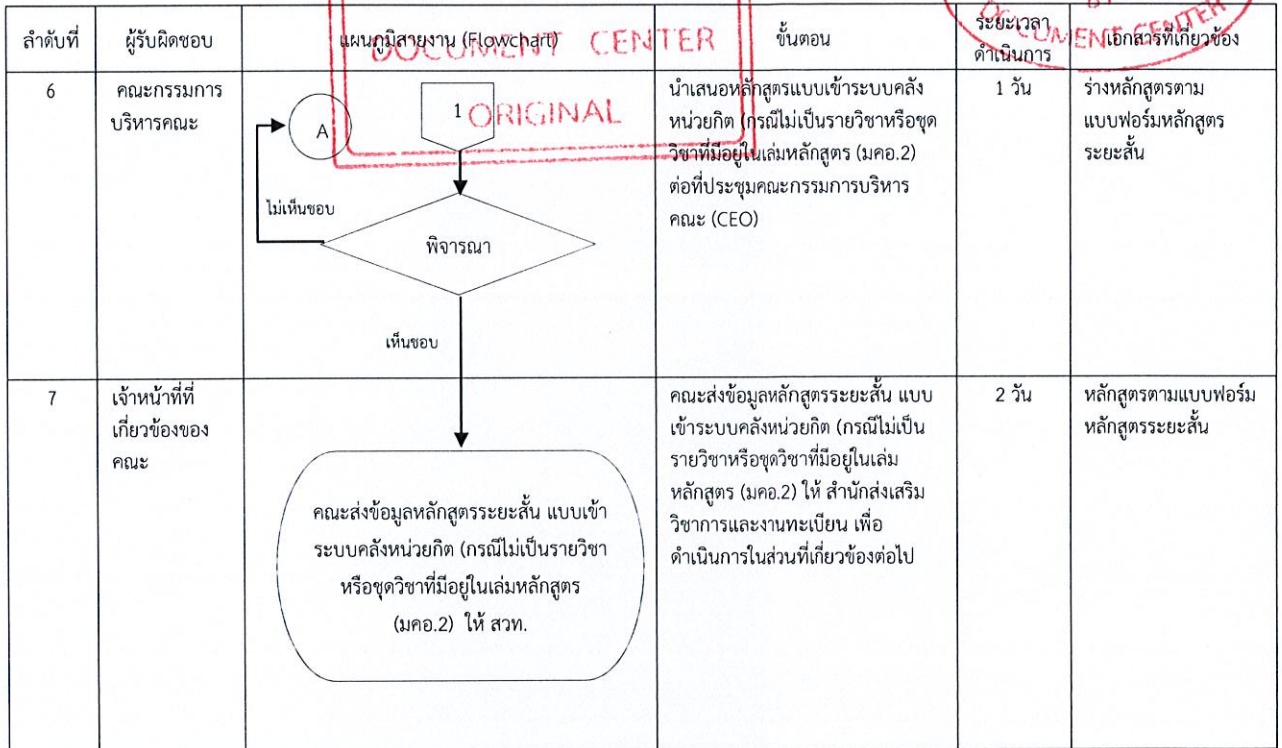 ลำดับที่
ผู้รับผิดชอบ
แผนภูมิสายงาน (Flowchart)
ขั้นตอน
ระยะเวลา
ดำเนินการ
เอกสารที่เกี่ยวข้อง
DOCUMENT CENTER
ORIGINAL
DOCUMENT CENTER
6
คณะกรรมการ
บริหารคณะ
A
1
ไม่เห็นชอบ
พิจารณา
เห็นชอบ
นำเสนอหลักสูตรแบบเข้าระบบคลัง
หน่วยกิต (กรณีไม่เป็นรายวิชาหรือชุด
วิชาที่มีอยู่ในเล่มหลักสูตร (มคอ.2)
ต่อที่ประชุมคณะกรรมการบริหาร
คณะ (CEO)
1 วัน
ร่างหลักสูตรตาม
แบบฟอร์มหลักสูตร
ระยะสั้น
7
เจ้าหน้าที่ที่
เกี่ยวข้องของ
คณะ
คณะส่งข้อมูลหลักสูตรระยะสั้น แบบเข้า
ระบบคลังหน่วยกิต (กรณีไม่เป็นรายวิชา
หรือชุดวิชาที่มีอยู่ในเล่มหลักสูตร
(มคอ.2) ให้ สวท.
คณะส่งข้อมูลหลักสูตรระยะสั้น แบบ
เข้าระบบคลังหน่วยกิต (กรณีไม่เป็น
รายวิชาหรือชุดวิชาที่มีอยู่ในเล่ม
หลักสูตร (มคอ.2) ให้ สำนักส่งเสริม
วิชาการและงานทะเบียน เพื่อ
ดำเนินการในส่วนที่เกี่ยวข้องต่อไป
2 วัน
หลักสูตรตามแบบฟอร์ม
หลักสูตรระยะสั้น